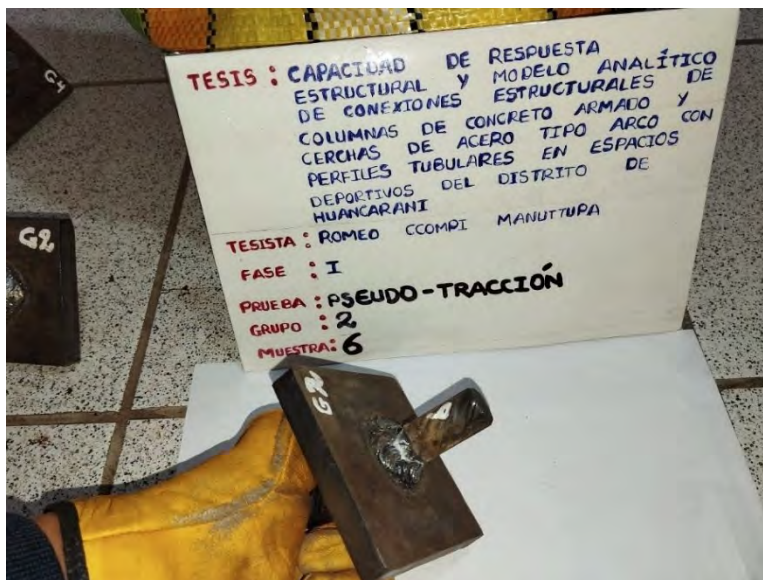 TESIS : CAPACIDAD DE RESPUESTA
ESTRUCTURAL Y MODELO ANALÍTICO
DE CONEXIONES ESTRUCTURALES DE
COLUMNAS DE CONCRETO ARMADO Y
CERCHAS DE ACERO TIPO ARCO CON
PERFILES TUBULARES EN ESPACIOS
DEPORTIVOS DEL DISTRITO DE
HUANCARANI
TESISTA : ROMEO CCOMPI MANUTTUPA
FASE : I
PRUEBA : PSEUDO-TRACCIÓN
GRUPO : 2
MUESTRA: 6
G2
G2